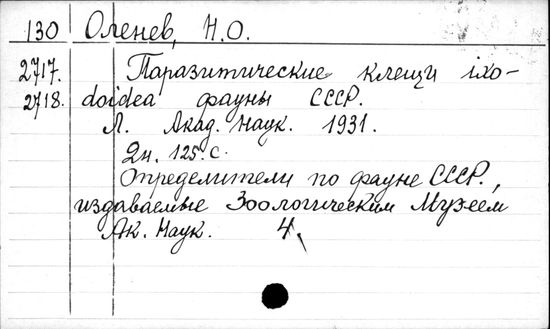 130 Оленев, Н.О.
2717. Паразитические клещи ixo-
2718. doidea фауны СССР.
Л. Акад. Наук. 1931.
2н. 125. с.
Определители по фауне СССР.,
издаваемые Зоологическим Музеем
Ак. Наук. 4.